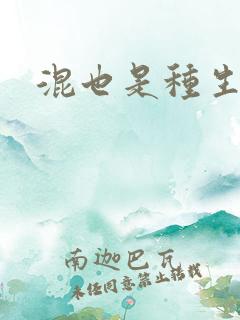 混也是種生
南迦巴瓦
未经同意禁止转载